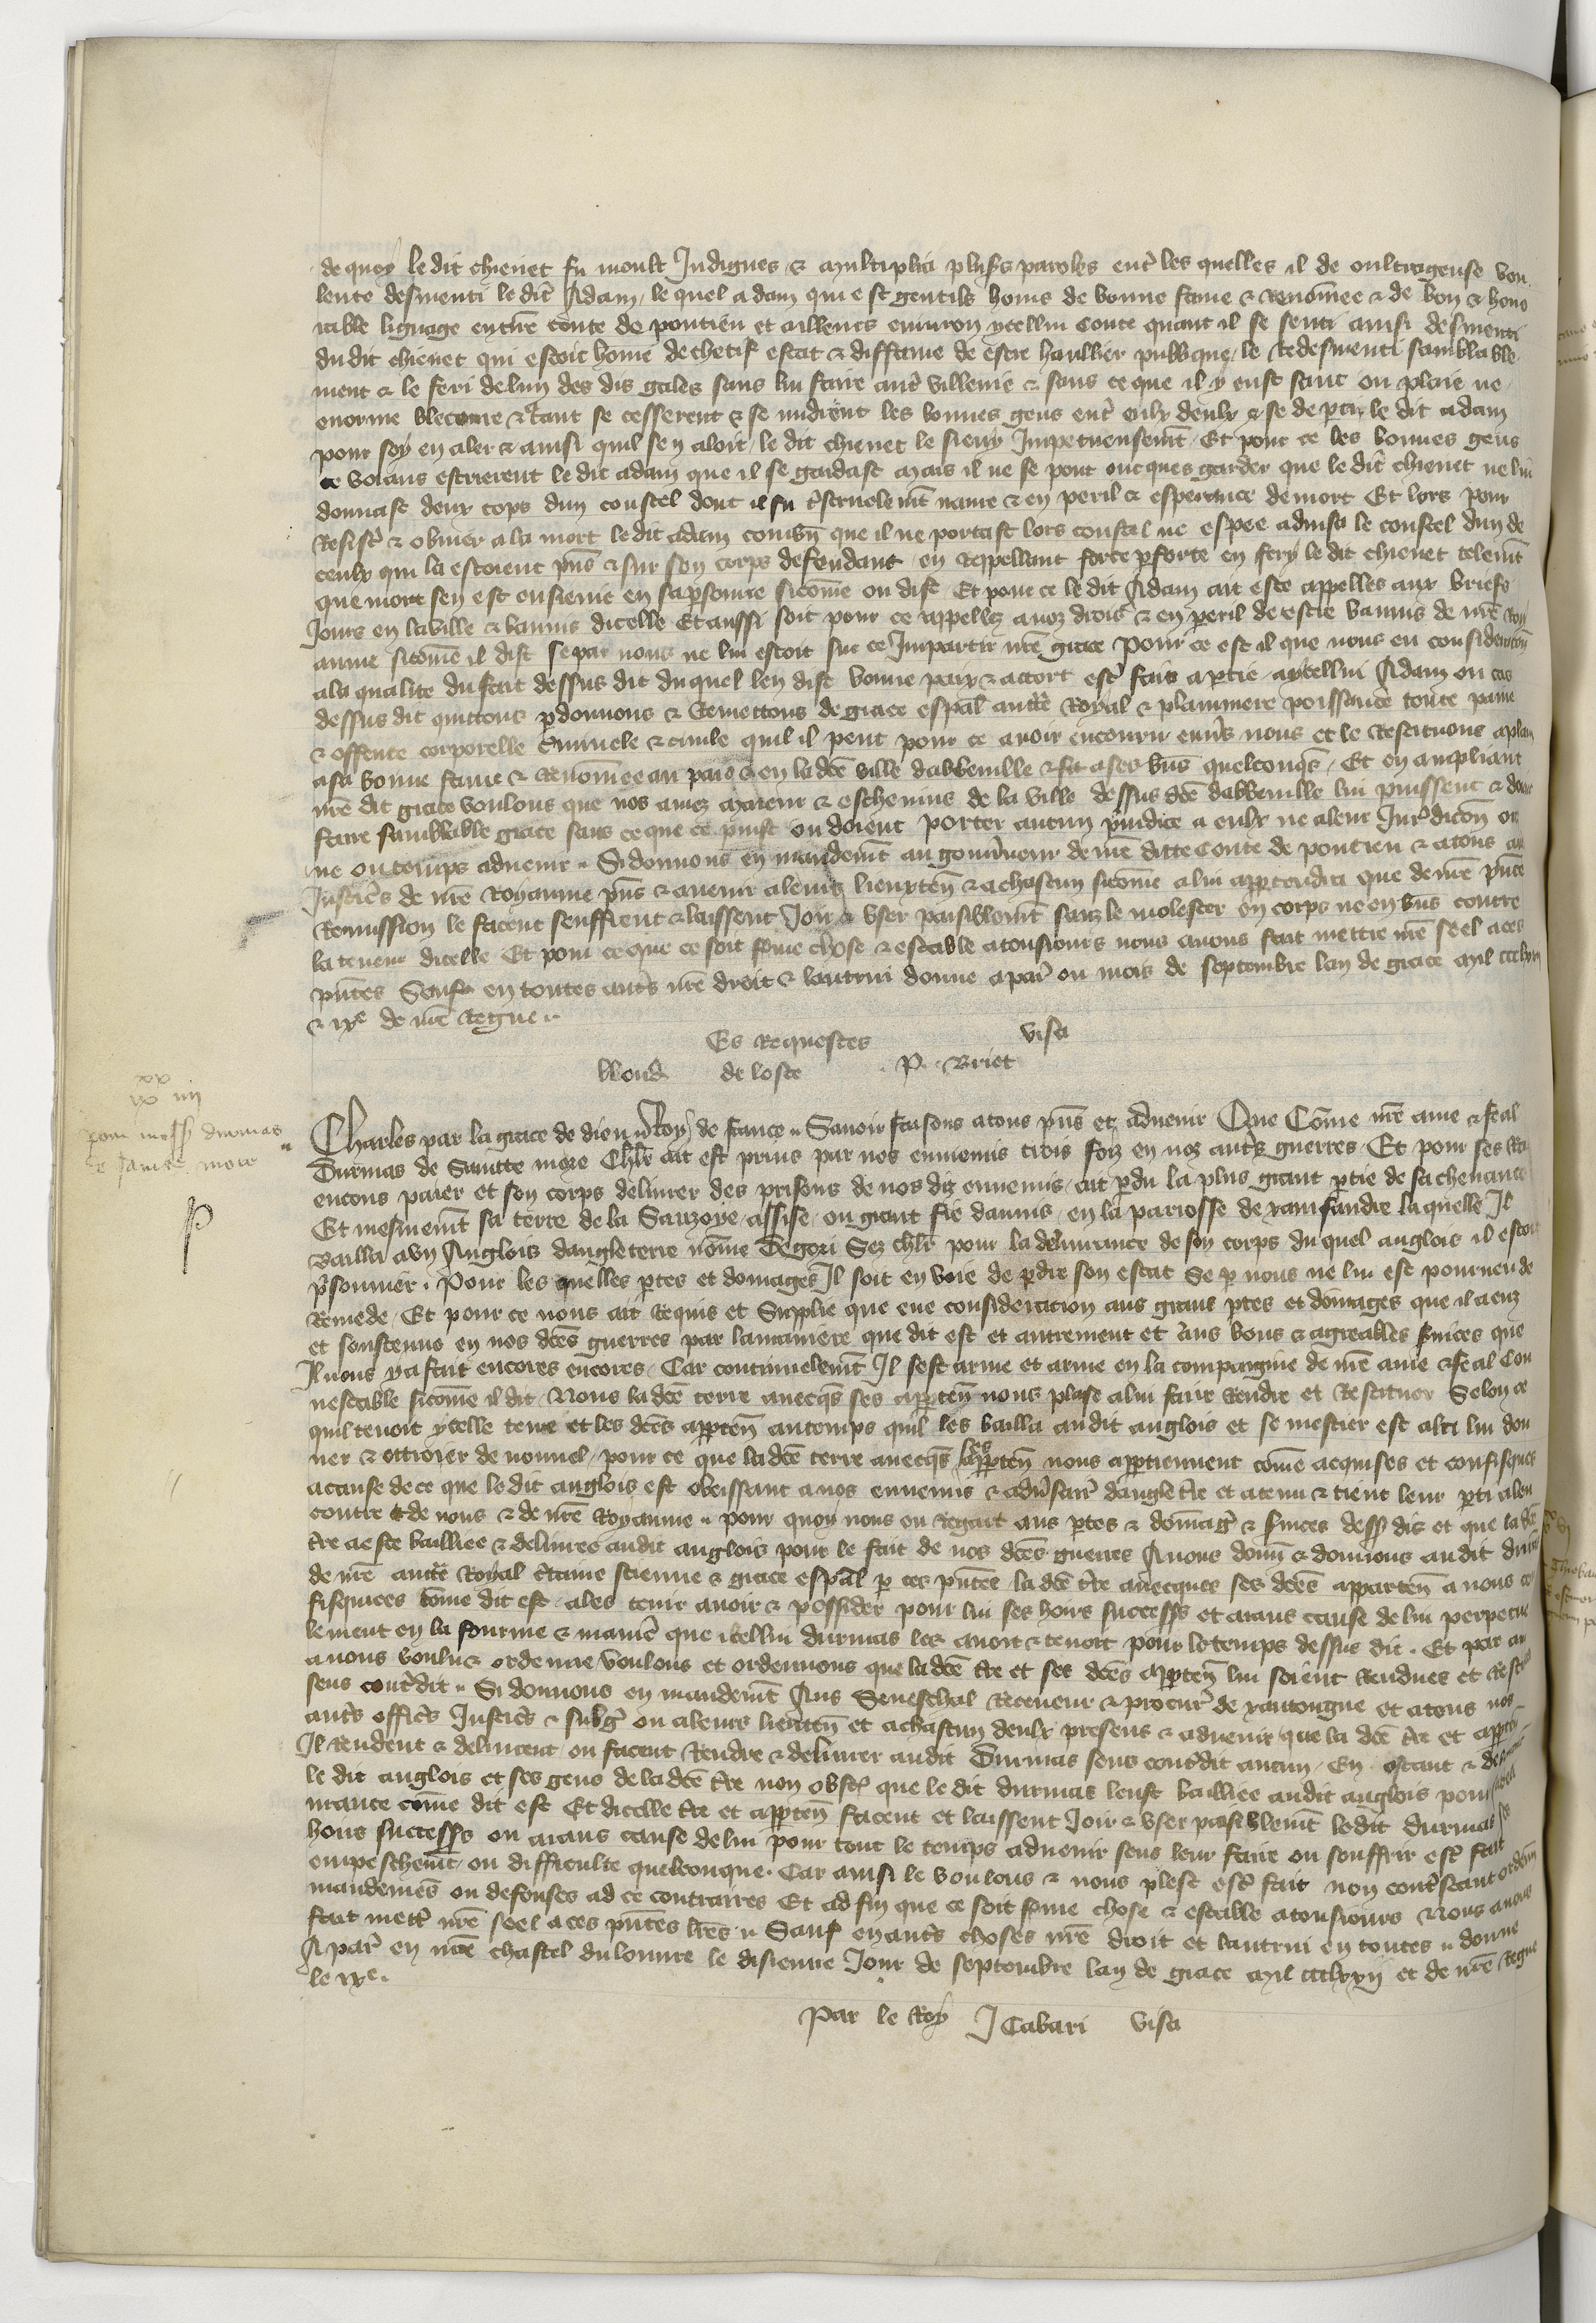 de quoy le dit chienet fu moult Indignes & multiplia plus's paroles ent' les quelles il de oultrageuse vou
lente desmenti le dit Adam / le quel adam qui est gentilz homs de bonne fame & renom̃ee & de bon & hono
rable lignage en nr̃e conte de pontieu et ailleurs enuiron ycellui conte quant il se senti ainsi desmenti
du dit chienet qui estoit hom̃e de chetif estat & diffame de estre haullier publique le redesmenti samblable
ment & le feri de lun des dis gales sans lui faire aut' villenie & sans ce que il y eust sanc ou plaie ne
enorme bleceure & tant se cesserent & se mid'rent les bonnes gens ent' eulx deulx & se depti le dit adam
pour soy en aler & ainsi quil sen aloit / le dit chienet le sieuy Impetueusem̃t / Et pour ce les bonnes gens
ce voians escrierent le dit adam que il se gardast mais il ne se pout oncques garder que le dit chienet ne lui
donnast deux cops dun coustel dont il fu navre & en peril & esperance de mort Et lors pour
Resist' & obuier a la mort le dit adam com̃bn̄ que il ne portast lors coustel ne espee aduisa le coustel dun de
ceulx qui la estoient pñs & sur son corps defendant / en Rappellant force p force en fery le dit chienet telem̃t
que mort sen est ensieuie en sa psonne sicom̃e on dist Et pour ce le dit Adam ait este appelles aux briefs
Jours en la ville & bannis dicelle Et aussi soit pour ce appellez a noz drois & en peril de estre bannis de nr̃e Roy
aume sicom̃e il dist se par nous ne lui estoit sur ce Impartie nr̃e grace Pour ce est il que nous eu consideracõn
a la qualite du fait dessus dit du quel len dist bonne paix & accort est' fais a ptie aycellui Adam ou cas
dessus dit quittons pdonnons & Remettons de grace esp̃al auct̃e Royal & plainniere poissance toute paine
& offence corporelle Criminele & ciuile quil il peut pour ce auoir encouru enu's nous et le Restituons a plain
a sa bonne fame & Renom̃ee au pais & en la dc̃e ville dabbeuille & a ses biens quelconqs / Et en ampliant
nr̃e dit grace voulons que nos amez maieur & escheuins de la ville dessus dc̃e dabbeuille lui puissent & doiue
faire samblable grace sans ce que ce puist ou doient porter aucun p̃iudice a eulx ne a leur Jur'dicõn or
ne ou temps aduenir .. Si donnons en mandem̃t au gouu'neur de nr̃e ditte Conte de pontieu & a tous au
Justic's de nr̃e Royaume pñs & auenir a leurs lieuxten̄ & a chascun sicom̃e a lui apptendra que de nr̃e pñte
Remission le facent seuffrent & laissent Joir & vser paisiblem̃t sanz le molester en corps ne en biens contre
la teneur dicelle Et pour ce que ce soit ferme chose & estable a tousiours nous auons fait mettre nr̃e seel a ces
pñtes Sauf en toutes aut's nr̃e droit & lautrui donne a par' ou mois de septembre lan de grace mil ccclxxij
& ixe de nr̃e Regne ..
Es Requestes visa
Blond. de loste P. Briet
xx
ix iiij
pour mess' durmas
de sainte more
Charles par la grace de dieu Roy de france .. Sauoir faisons a tous pñs et aduenir Que Com̃e nr̃e ame & feal
Durmas de Saincte more Chlr ait est prins par nos ennemis trois foiz en noz aut's guerres / Et pour ses Ra
encons paier et son corps deliurer des prisons de nos diz ennemis / ait pdu la plus grant ptie de sa cheuance
Et mesmem̃t sa terre de la Sauzoye / assise / ou grant fie daunis / en la parrosse de xainfandre la quelle Il
Bailla a vn Anglois dangleterre nom̃e Degori Sez chlr pour la deliurance de son corps du quel anglois il estoit
p'sonnier . Pour les quelles ptes et domages Il soit en voie de pdre son estat Se p nous ne lui est pourueu de
Remede / Et pour ce nous ait Requis et Supplie que eue consideracion aus grans ptes et dom̃ages que il a euz
et soustenus en nos dc̃es guerres par la maniere que dit est et autrement et aus bons & agreables seruices que
Il nous y a fait encores encores . Car continuelem̃t Il sest arme et arme en la compaignie de nr̃e ame & feal Con
nestable sicom̃e il dit / Nous la dc̃e terre auecqs ses apptñ nous plase a lui faire Rendre et Restituer Selon ce
quil tenoit ycelle terre et les dc̃es apptñ au temps quil les bailla audit anglois et se mestier est a lui don
ner & ottroier de nouuel / pour ce que la dc̃e terre auecqs les apptñ nous apptiennent com̃e acquises et confisquees
a cause de ce que le dit anglois est obeissant a nos ennemis & adu'sair' dangleterre et a tenu & tient leur pti alen
contre de nous & de nr̃e Royaume .. pour quoy nous eu Regart aus ptes & domag' & seruices dess' dis et que la dc̃e
t're a este bailliee & deliuree audit anglois pour le fait de nos dc̃es guerres Auons donn̄ & donnons audit durmas
de nr̃e auct̃e Royal c'taine science & grace esp̃al p ces pñtes la dc̃e t're auecques ses dc̃es apparten̄ a nous con
fisquees com̃e dit est a les tenir auoir & possider pour lui ses hoirs success's et aians cause de lui perpetue
lement en la fourme & manie' que icellui durmas les auoit & tenoit pour le temps dessus dit . Et par au
a nous voulu & ordenne voulons et ordennons que la dc̃e t're et ses dc̃es apptñ lui soient Rendues et Restitu
sens contr̃dit .. Si donnons en mandem̃t Aus Seneschal Receueur & procur' de xantongne et a tous nos
aut's offic's Justic's & subg' ou a leurs lieuten̄ et a chascun deulx presens & aduenir que la dc̃e t're et apptñ
Il Rendent & deliurent ou facent Rendre & deliurer audit Durmas sens contr̃dit aucun / En ostant &
le dit anglois et ses gens de la dc̃e t're non obst' que le dit durmas leust bailliee audit anglois pour sa deli
urance com̃e dit est Et dicelle t're et apptñ facent et laissent Joir & vser pasiblem̃t ledit durmas ses
hoirs success's ou aians cause de lui pour tout le temps aduenir sens leur faire ou souffrir est' fait
empeschem̃t ou difficulte quelconque . Car ainsi le voulons & nous plest est' fait non contr̃steant ordenn̄
mandemẽs ou defenses ad ce contraires Et ad fin que ce soit ferme chose & estable a tousiours Nous auons
fait mett' nr̃e seel a ces pñtes lr̃es .. Sauf en aut's choses nr̃e droit et lautrui en toutes .. donne
A par' en nr̃e chastel du louure le disieme Jour de septembre lan de grace mil ccclxxij et de nr̃e Regne
le ixe.
Par le Roy J Cabari visa